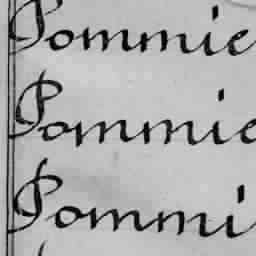 Pommie
Pommie
Pommi